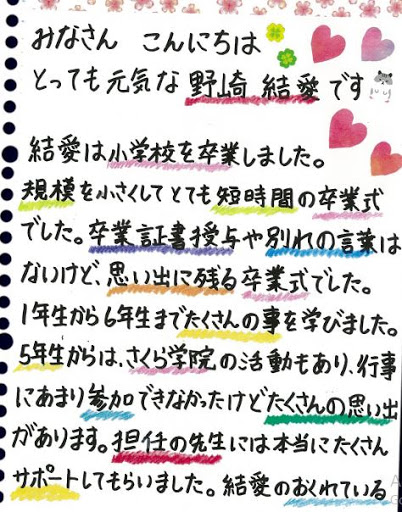 みなさん こんにちは
とっても元気な野崎 結愛です
結愛は小学校を卒業しました。
規模を小さくしてとても短時間の卒業式
でした。卒業証書授与や別れの言葉は
ないけど、思い出に残る卒業式でした。
1年生から6年生までたくさんの事を学びました。
5年生からは、さくら学院の活動もあり、行事
にあまり参加できなかったけどたくさんの思い出
があります。担任の先生には本当にたくさん
サポートしてもらいました。結愛のおくれている